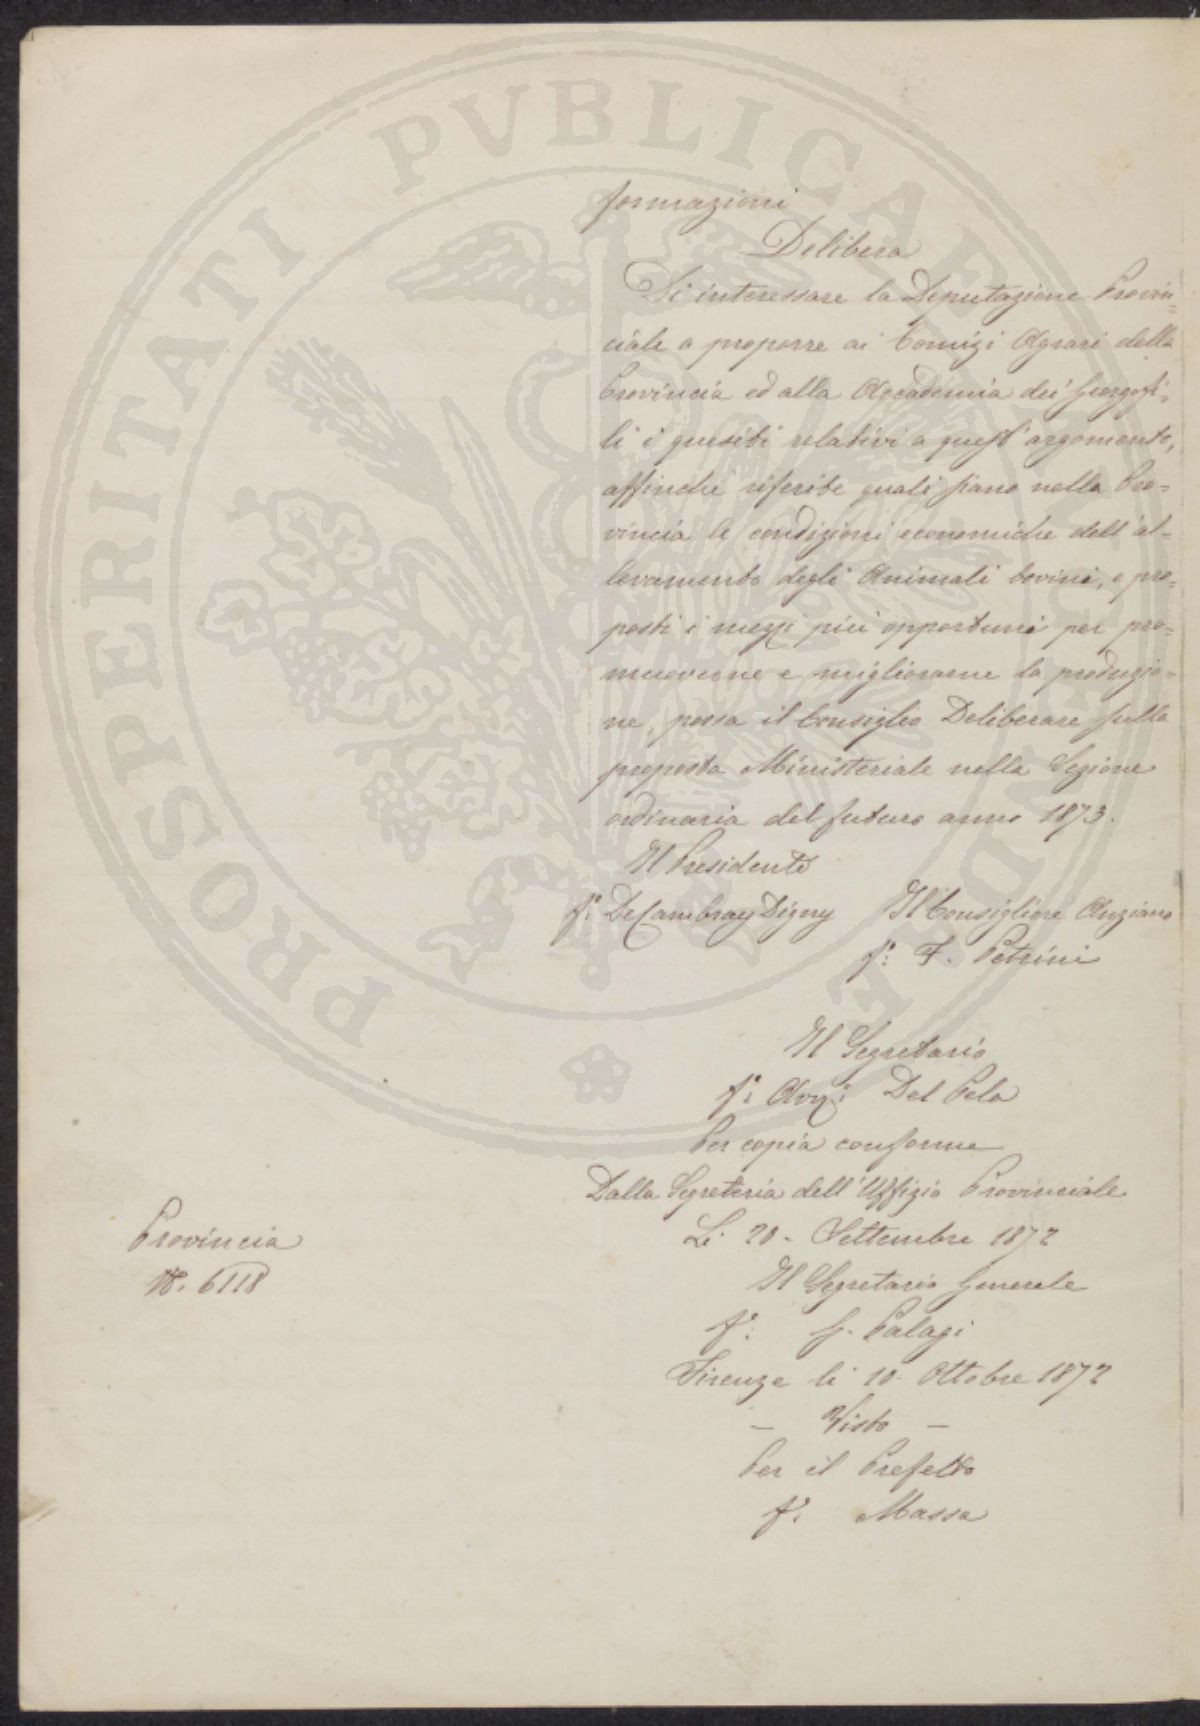 formazioni
Delibera
Di interessare la Deputazione Provin=
ciale a proporre ai Comizi Agrari della
Provincia ed alla Accademia dei Georgofi=
li i quesiti relativi a quest'argomento,
affinchè riferite quali siano nella Pro=
vincia le condizioni economiche dell'al=
levamento degli Animali bovini, e pro=
posti i mezzi più opportuni per pro=
muoverne e migliorarne la produzio=
ne, possa il Consiglio Deliberare sulla
proposta Ministeriale nella Sezione
ordinaria del futuro anno 1873.
Il Presidente
f.º De Cambray Digny Il Consigliere Anziano
f.º F. Petrini
Il Segretario
f.º Del Pela
Per copia conforme
Dalla Segreteria dell'Uffizio Provinciale
Li 20. Settembre 1872
Provincia
N. 6118
Il Segretario Generale
f.º G. Palagi
Firenze li 10. Ottobre 1872
— Visto —
Per il Prefetto
f.º Massa
PROSPERITATI PVBLICAE AVGENDAE